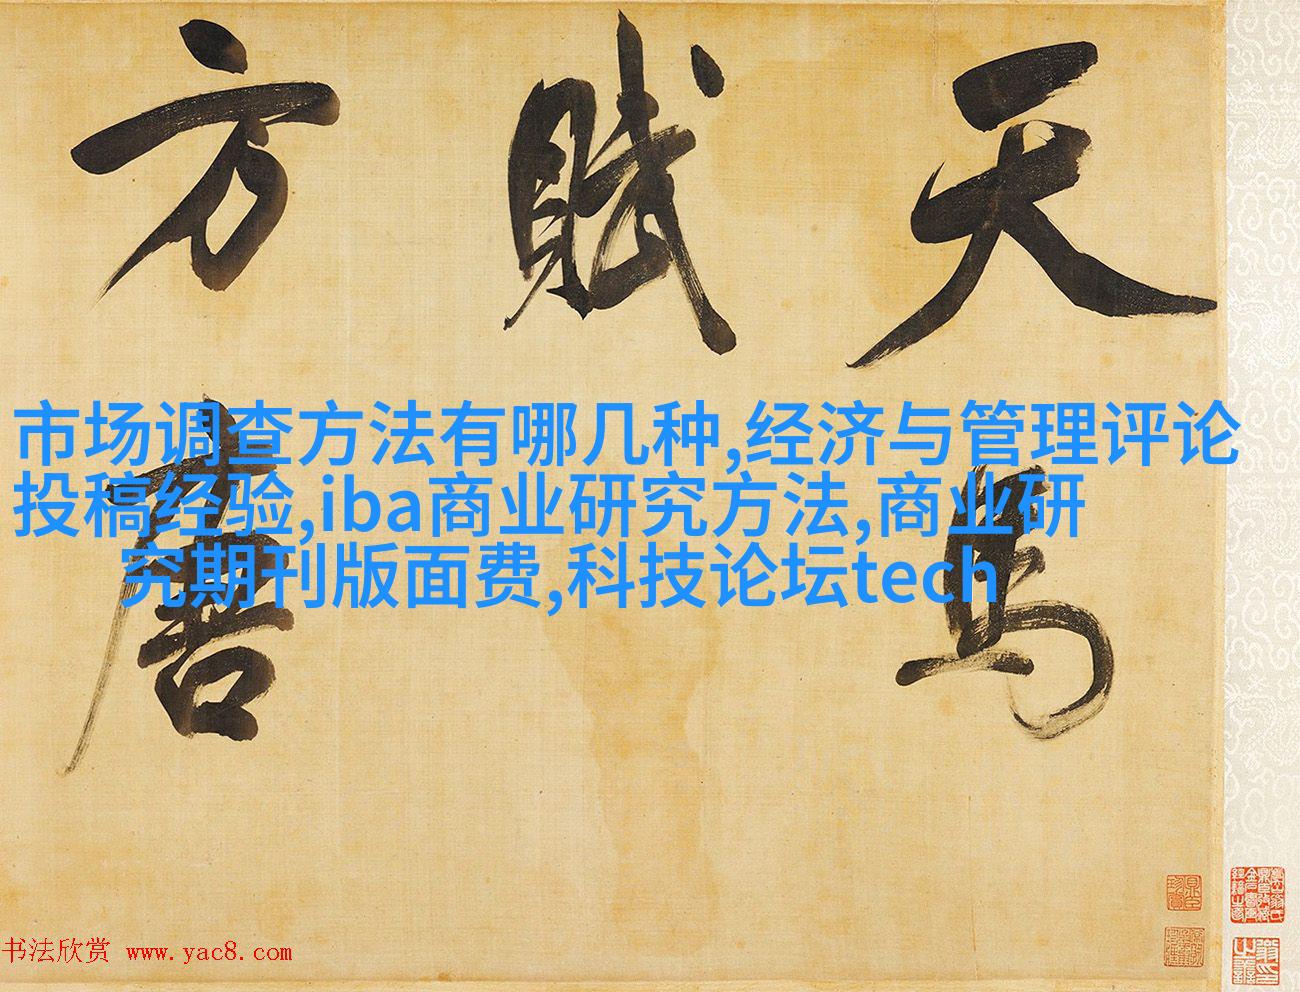 天馬
賦
方唐
市场调查方法有哪几种,经济与管理评论
投稿经验,iba商业研究方法,商业研
究期刊版面费,科技论坛tech
书法欣赏 www.yac8.com